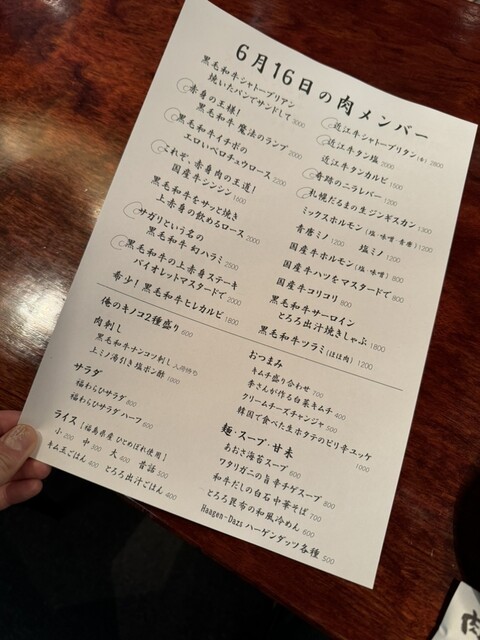 6月16日の肉メンバー
黒毛和牛シャトーブリアン
焼いたパンでサンドして 3000
赤身の王様!
黒毛和牛 魔法のランプ 2000
黒毛和牛イチボの
エロいベロチュウロース 2200
これぞ、赤身肉の王道!
国産牛シンシン 1600
黒毛和牛をサッと焼き
上赤身の飲めるロース 2000
サガリという名の
黒毛和牛旬ハラミ 2500
黒毛和牛の上赤身ステーキ
バイオレットマスタードで 2000
希少!黒毛和牛ヒレカルビ 1800
近江牛シャトーブリアン 2800
近江牛タン塩 2000
近江牛タンカルビ 1500
奇跡のニラレバー 1200
札幌だるまの生ジンギスカン 1300
ミックスホルモン(塩・味噌・青唐) 1200
青唐ミノ 1200 塩ミノ 1200
国産牛ホルモン(塩・味噌) 800
国産牛ハツをマスタードで 800
国産牛コリコリ 800
黒毛和牛サーロイン
とろろ出汁焼きしゃぶ 1800
黒毛和牛ツラミ(ほほ肉) 1200
俺のキノコ2種盛り 600
肉刺し
黒毛和牛ナンコツ刺し 入荷待ち
上ミノ湯引き塩ポン酢 1000
サラダ
福わらひサラダ 800
福わらひサラダハーフ 600
ライス【福島県産 ひとめぼれ使用】
小 200 中 300 大 400 昔話 500
キム玉ごはん 400 とろろ出汁ごはん 400
おつまみ
キムチ盛り合わせ 700
李さんが作る白菜キムチ 400
クリームチーズチャンジャ 500
韓国で食べた生ホタテのピリ辛ユッケ 1000
麺・スープ・甘未
あおさ海苔スープ 600
ワタリガニの旨辛チゲスープ 800
和牛だしの白石中華そば 700
とろろ昆布の和風冷めん 600
Haagen-Dazs ハーゲンダッツ各種 500
肉